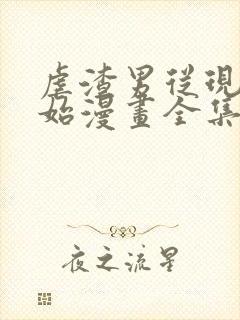 虐渣男從現
始漫畫全集
夜之流星